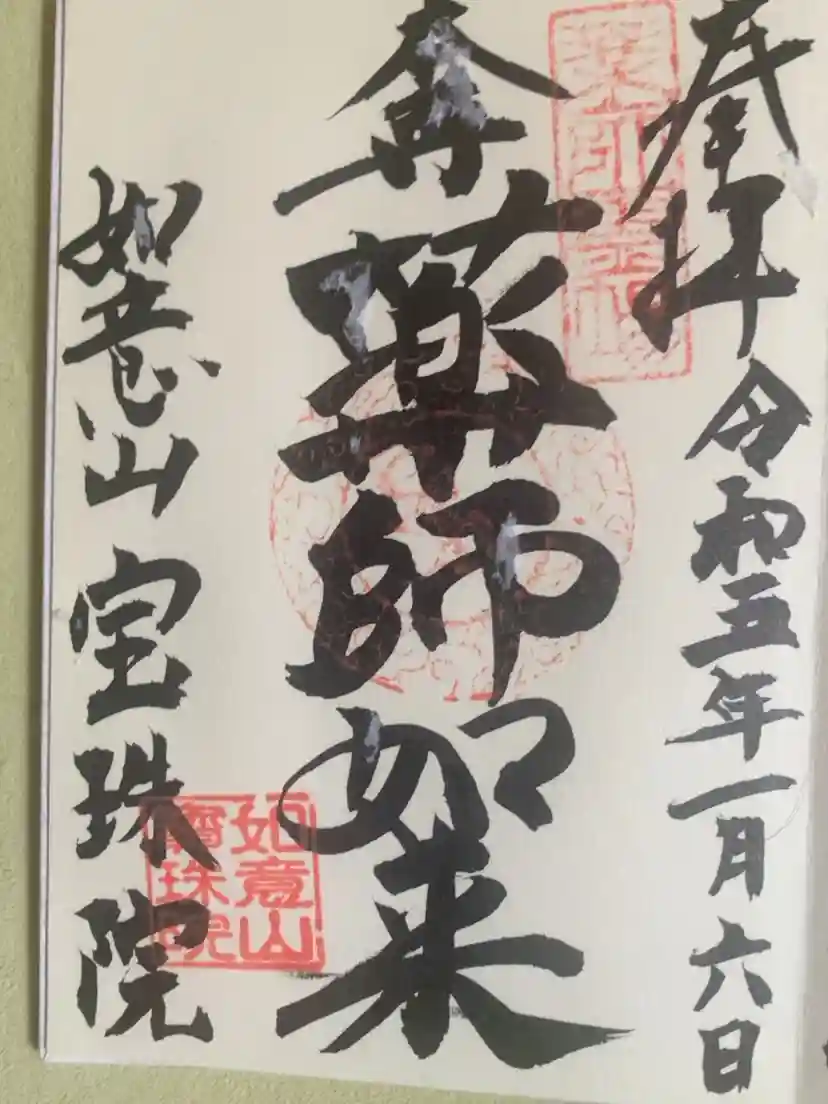 奉拝 令和五年一月六日
薬師如来
如意山 宝珠院
如意山
寶珠院